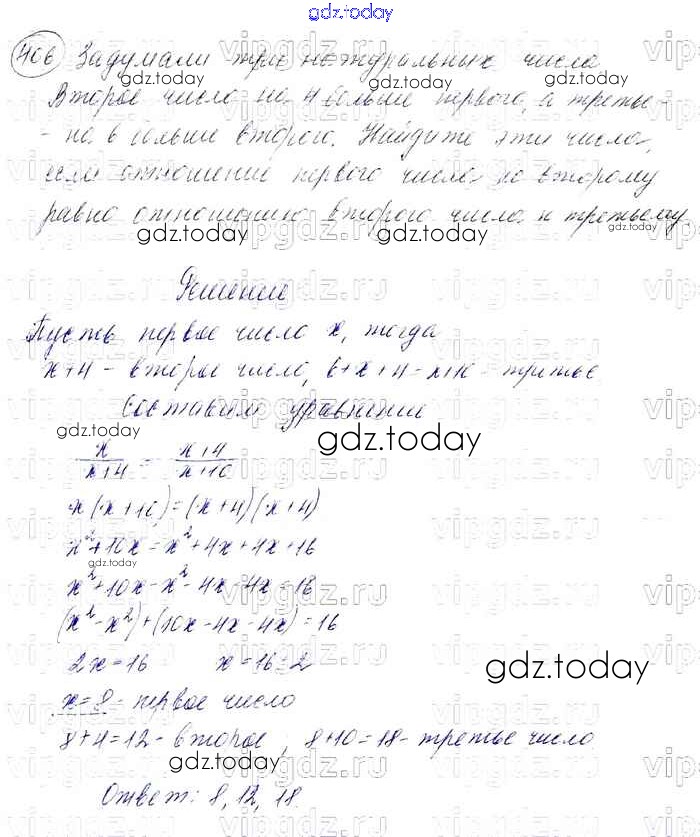 gdz.today
406 Задумали три натуральных числа
Второе число на 4 больше первого, а третье -
- на 6 больше второго. Найдите эти числа,
если отношение первого числа ко второму
равно отношению второго числа к третьему
Решение
Пусть первое число x, тогда
x+4 - второе число, 6+x+4=x+10 - третье
Составим уравнение
x/(x+4) = (x+4)/(x+10)
x(x+10)=(x+4)(x+4)
x²+10x=x²+4x+4x+16
x²+10x-x²-4x-4x=16
(x²-x²)+(10x-4x-4x)=16
2x=16 x=16:2
x=8 - первое число
8+4=12 - второе; 8+10=18 - третье число
Ответ: 8, 12, 18.